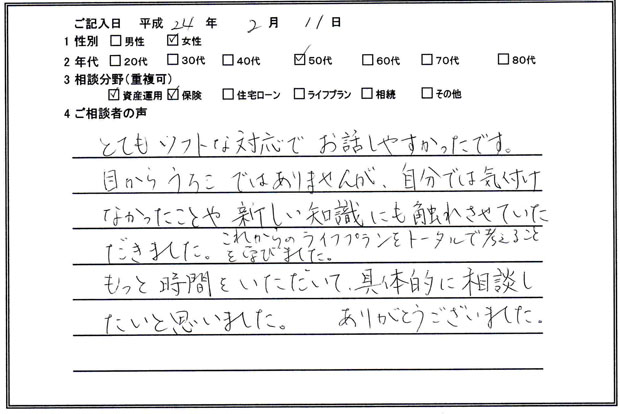 ご記入日 平成 24 年 2 月 11 日
1 性別 □男性 ☑女性
2 年代 □20代 □30代 □40代 ☑50代 □60代 □70代 □80代
3 相談分野(重複可)
☑資産運用 ☑保険 □住宅ローン □ライフプラン □相続 □その他
4 ご相談者の声
とてもソフトな対応で お話しやすかったです。
目からうろこ ではありませんが、自分では気付け
なかったことや 新しい知識にも触れさせていた
だきました。これからのライフプランをトータルで考えること
を学びました。
もっと時間をいただいて、具体的に相談し
たいと思いました。 ありがとうございました。